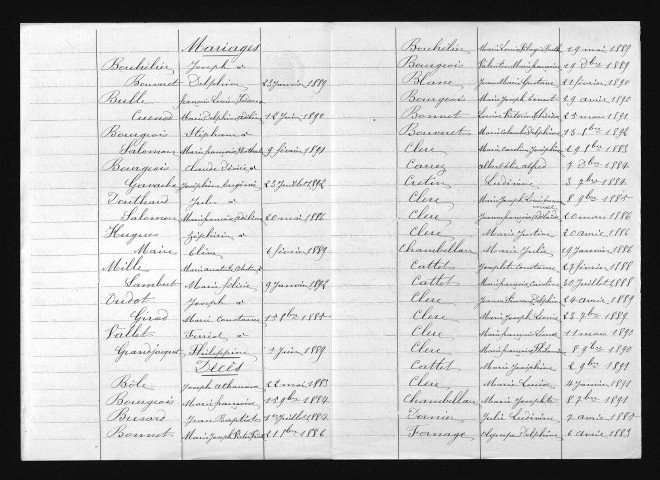 Mariages
Bouhélier Joseph &
Bouveret Delphine 23 janvier 1889
Bulle françois Louis
Cuenot Marie Delphine 12 juin 1890
Bourgeois Stéphane &
Salomon Marie françoise 9 février 1891
Bourgeois Claude Désiré &
Gavache Joséphine Eugénie 23 juillet 1892
Douthaud Jules &
Salomon Marie françoise 20 mai 1886
Hugues Zéphirin &
Maire Elise 6 février 1889
Mille Marie anatole &
Lambut Marie félicie 9 janvier 1892
Oudot Joseph &
Girod Marie Constance 1er 8bre 1885
Vallet &
Grandjacquet Philippine juin 1889
Décès
Bôle Joseph athanase 22 mai 1883
Bourgeois Marie françoise 15 9bre 1884
Busard Jean Baptiste 1er juillet 1884
Bonnet Marie Joseph 21 8bre 1886
Bouhélier Marie Louise 19 mai 1889
Bourgeois Valentin Marie françois 19 Xbre 1889
Blanc Jean Marie Gustave 21 février 1890
Bourgeois Marie Joseph Ernest 29 avril 1890
Bonnot Louise Victorine 25 mars 1891
Bouveret Marie Delphine 15 8bre 1892
Clerc Marie Joséphine 29 8bre 1883
Carrez albert élie alfred 7 Xbre 1884
Cretin Ludivine 3 7bre 1884
Clerc Marie Joseph 8 9bre 1885
Clerc Jeanne françoise 20 mars 1886
Clerc Marie Justine 20 avril 1886
Chambellan Marie Julie 19 janvier 1886
Cattet Josephte Constance 27 février 1888
Cattet Marie françoise Caroline 30 juillet 1888
Clerc Jeanne Delphine 24 avril 1889
Clerc Marie Joseph 23 7bre 1889
Clerc Marie françoise 11 mars 1890
Clerc Marie françoise Philomène 8 9bre 1890
Cattet Marie Joséphine 2 9bre 1891
Clerc Marie Louise 4 janvier 1891
Chambellan Marie Josephte 8 7bre 1891
Dornier Julie Ludivine 7 avril 1885
Fornage Olympe Delphine 6 avril 1883